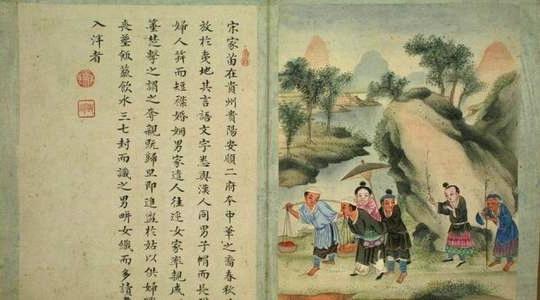 宋家苗在貴州貴陽安順二府本中華之裔春秋
放於夷地其言語文字悉與漢人同男子帽而長
婦人笄而短襟婚姻男家遣人往迎女家率親戚
箠楚擊之謂之奪親既歸旦即進盥於姑以供婦
喪塟飯蔬飲水三七封而識之男畊女織而多讀書
入泮者